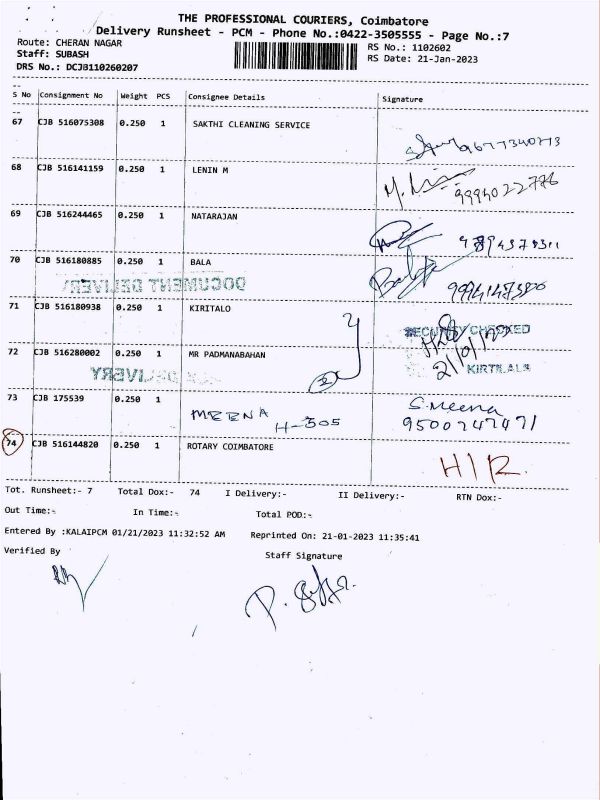 THE PROFESSIONAL COURIERS, Coimbatore
Delivery Runsheet - PCM - Phone No.:0422-3505555 - Page No.:7
Route: CHERAN NAGAR RS No.: 1102602
Staff: SUBASH RS Date: 21-Jan-2023
DRS No.: DCJB110260207
S No Consignment No Weight PCS Consignee Details Signature
67 CJB 516075308 0.250 1 SAKTHI CLEANING SERVICE
9677340773
68 CJB 516141159 0.250 1 LENIN M
9994022776
69 CJB 516244465 0.250 1 NATARAJAN
70 CJB 516180885 0.250 1 BALA
DOCUMENT DELIVERY
71 CJB 516180938 0.250 1 KIRITALO
SECURITY CHECKED
72 CJB 516280002 0.250 1 MR PADMANABAHAN
21/01/23
KIRTILALS
DELIVERY
73 CJB 175539 0.250 1
MEENA H-305 S.Meena
9500747471
74 CJB 516144820 0.250 1 ROTARY COIMBATORE
H/R
Tot. Runsheet:- 7 Total Dox:- 74 I Delivery:- II Delivery:- RTN Dox:-
Out Time:- In Time:- Total POD:-
Entered By :KALAIPCM 01/21/2023 11:32:52 AM Reprinted On: 21-01-2023 11:35:41
Verified By Staff Signature